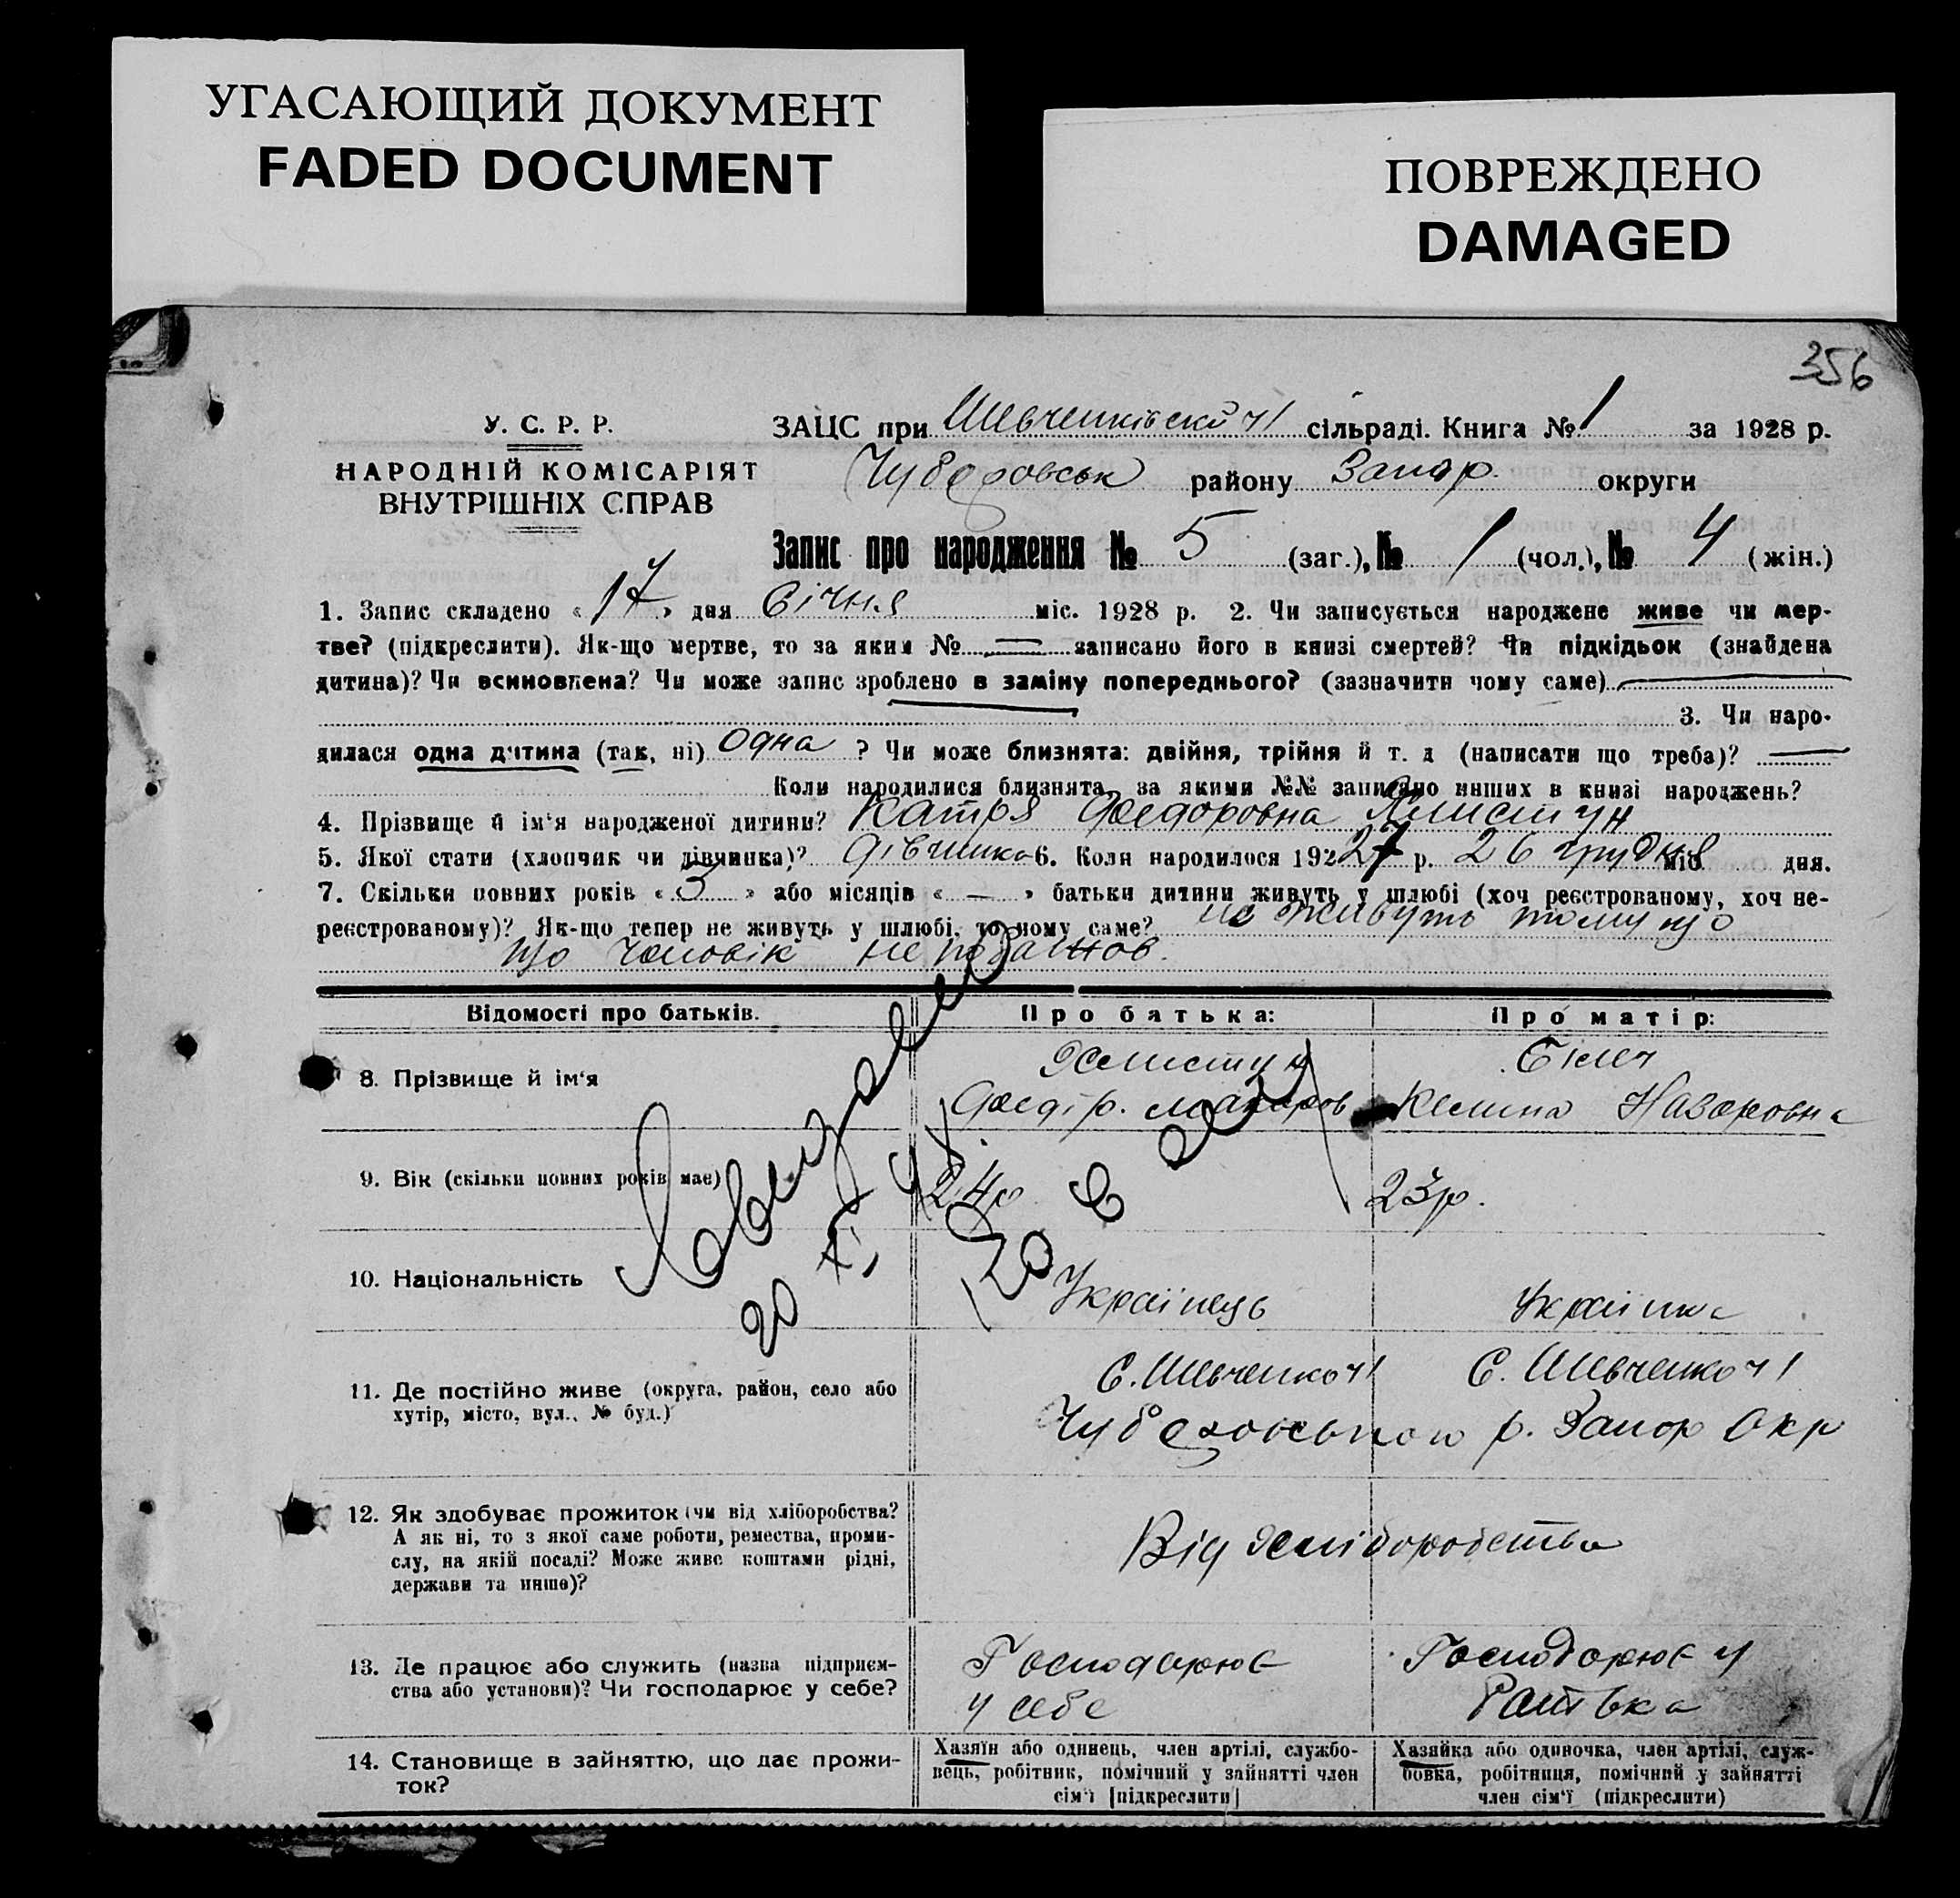 УГАСАЮЩИЙ ДОКУМЕНТ
FADED DOCUMENT
ПОВРЕЖДЕНО
DAMAGED
356
У. С. Р. Р.
НАРОДНІЙ КОМІСАРІЯТ
ВНУТРІШНІХ СПРАВ
ЗАЦС при Шевченківскій ч1 сільраді. Книга № 1 за 1928 р.
району Запор. округи
Запис про народження № 5 (заг.), № 1 (чол.), № 4 (жін.)
1. Запис складено « 17 » дня січня міс. 1928 р. 2. Чи записується народжене живе чи мер-
тве? (підкреслити). Як-що мертве, то за яким № записано його в книзі смертей? Чи підкідьок (знайдена
дитина)? Чи всиновлена? Чи може запис зроблено в заміну попереднього? (зазначити чому саме)
3. Чи наро-
дилася одна дитина (так, ні) Одна ? Чи може близнята: двійня, трійня й т. д (написати що треба)?
Коли народилися близнята, за якими №№ записано инших в книзі народжень?
4. Прізвище й ім'я народженої дитини? Катря Федоровна Хлистун
5. Якої стати (хлопчик чи дівчинка)? дівчинка 6. Коли народилося 192 27 р. 26 грудня міс. дня.
7. Скільки повних років « 3 » або місяців « — » батьки дитини живуть у шлюбі (хоч реєстрованому, хоч не-
реєстрованому)? Як-що тепер не живуть у шлюбі, то чому саме? не живуть тому що
що чоловік не
Відомості про батьків.
Про батька:
Про матір:
8. Прізвище й ім'я
Хлистун
Федір. Макаров
Біляч
Килина Назаровна
9. Вік (скільки повних років має)
24р.
23р.
10. Національність
Українець
Українка
11. Де постійно живе (округа, район, село або
хутір, місто, вул., № буд.)
С. Шевченко ч1
С. Шевченко ч1
р. Запор Окр
12. Як здобуває прожиток (чи від хліборобства?
А як ні, то з якої саме роботи, ремества, проми-
слу, на якій посаді? Може живе коштами рідні,
держави та инше)?
Від хліборобства
13. Де працює або служить (назва підприєм-
ства або установи)? Чи господарює у себе?
Господарює
у себе
Господорює у
батька
14. Становище в зайняттю, що дає прожи-
ток?
Хазяїн або одинець, член артілі, службо-
вець, робітник, помічний у зайнятті член
сім'ї [підкреслити]
Хазяйка або одиночка, член артілі, служ-
бовка, робітниця, помічний у зайнятті
член сім'ї (підкреслити)